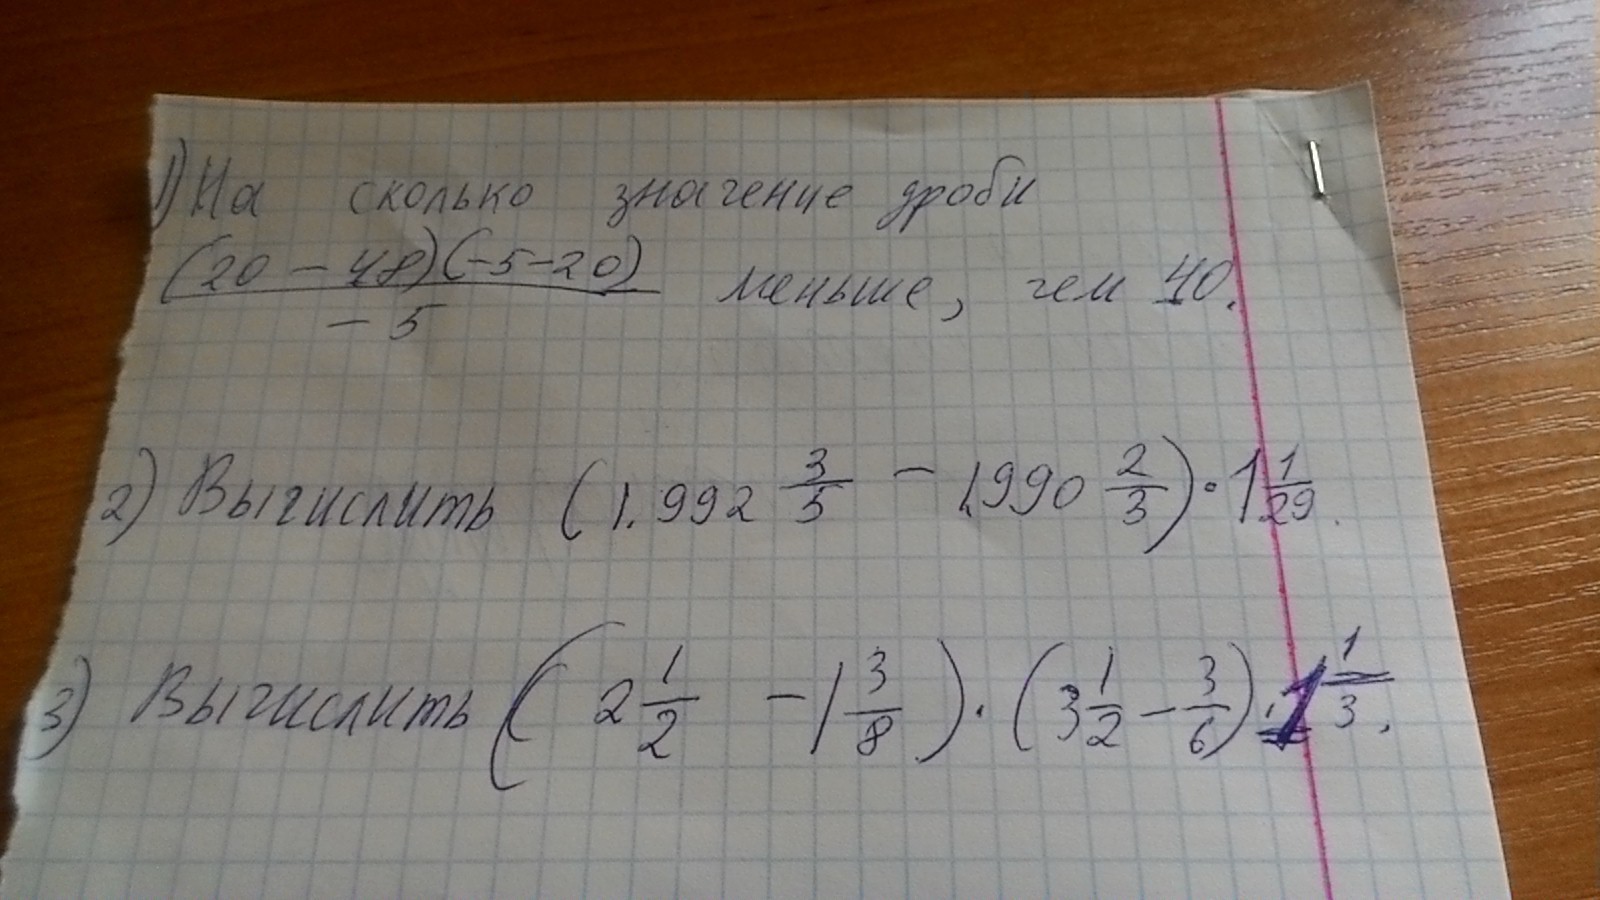 1) На сколько значение дроби
(20 - 48)(-5-20) / -5 меньше, чем 40.
2) Вычислить (1.992 3/5 - 1990 2/3) · 1 1/29.
3) Вычислить (2 1/2 - 1 3/8) · (3 1/2 - 3/6) : 1 1/3.